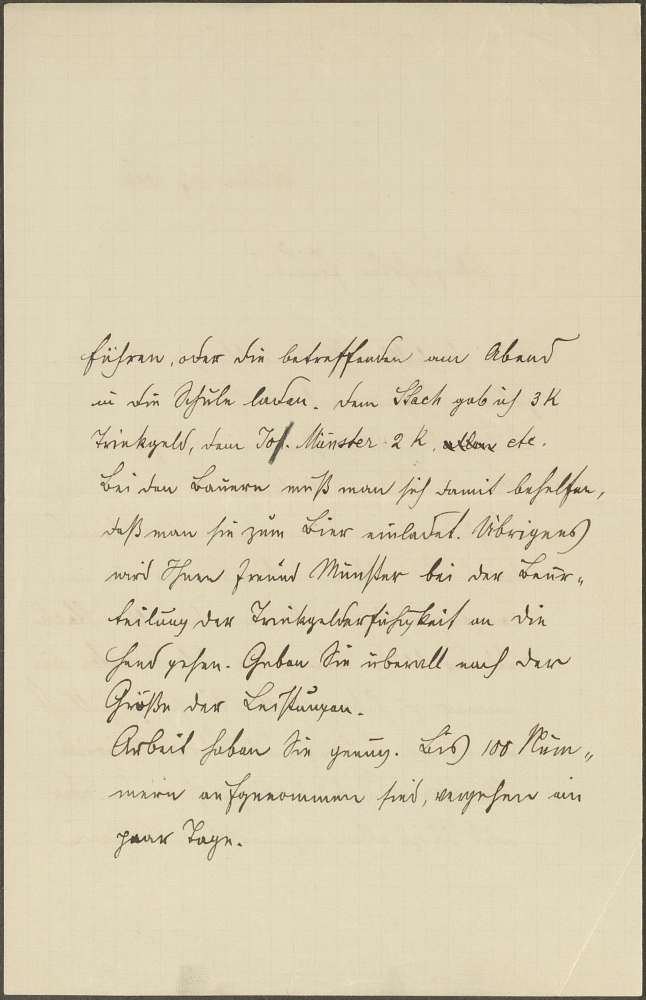 führen, oder die betreffenden am Abend
in die Schule laden. Dem Stach gab ich 3 K
Trinkgeld, dem Joh. Münster 2 K, etc.
Bei den Bauern muß man sich damit behelfen,
daß man sie zum Bier einladet. Übrigens
wird Ihnen Freund Münster bei der Beur-
teilung der Trinkgelderfähigkeit an die
Hand gehen. Geben Sie überall nach der
Größe der Leistungen.
Arbeit haben Sie genug. Bis 100 Num-
mern aufgenommen sind, vergehen ein
paar Tage.